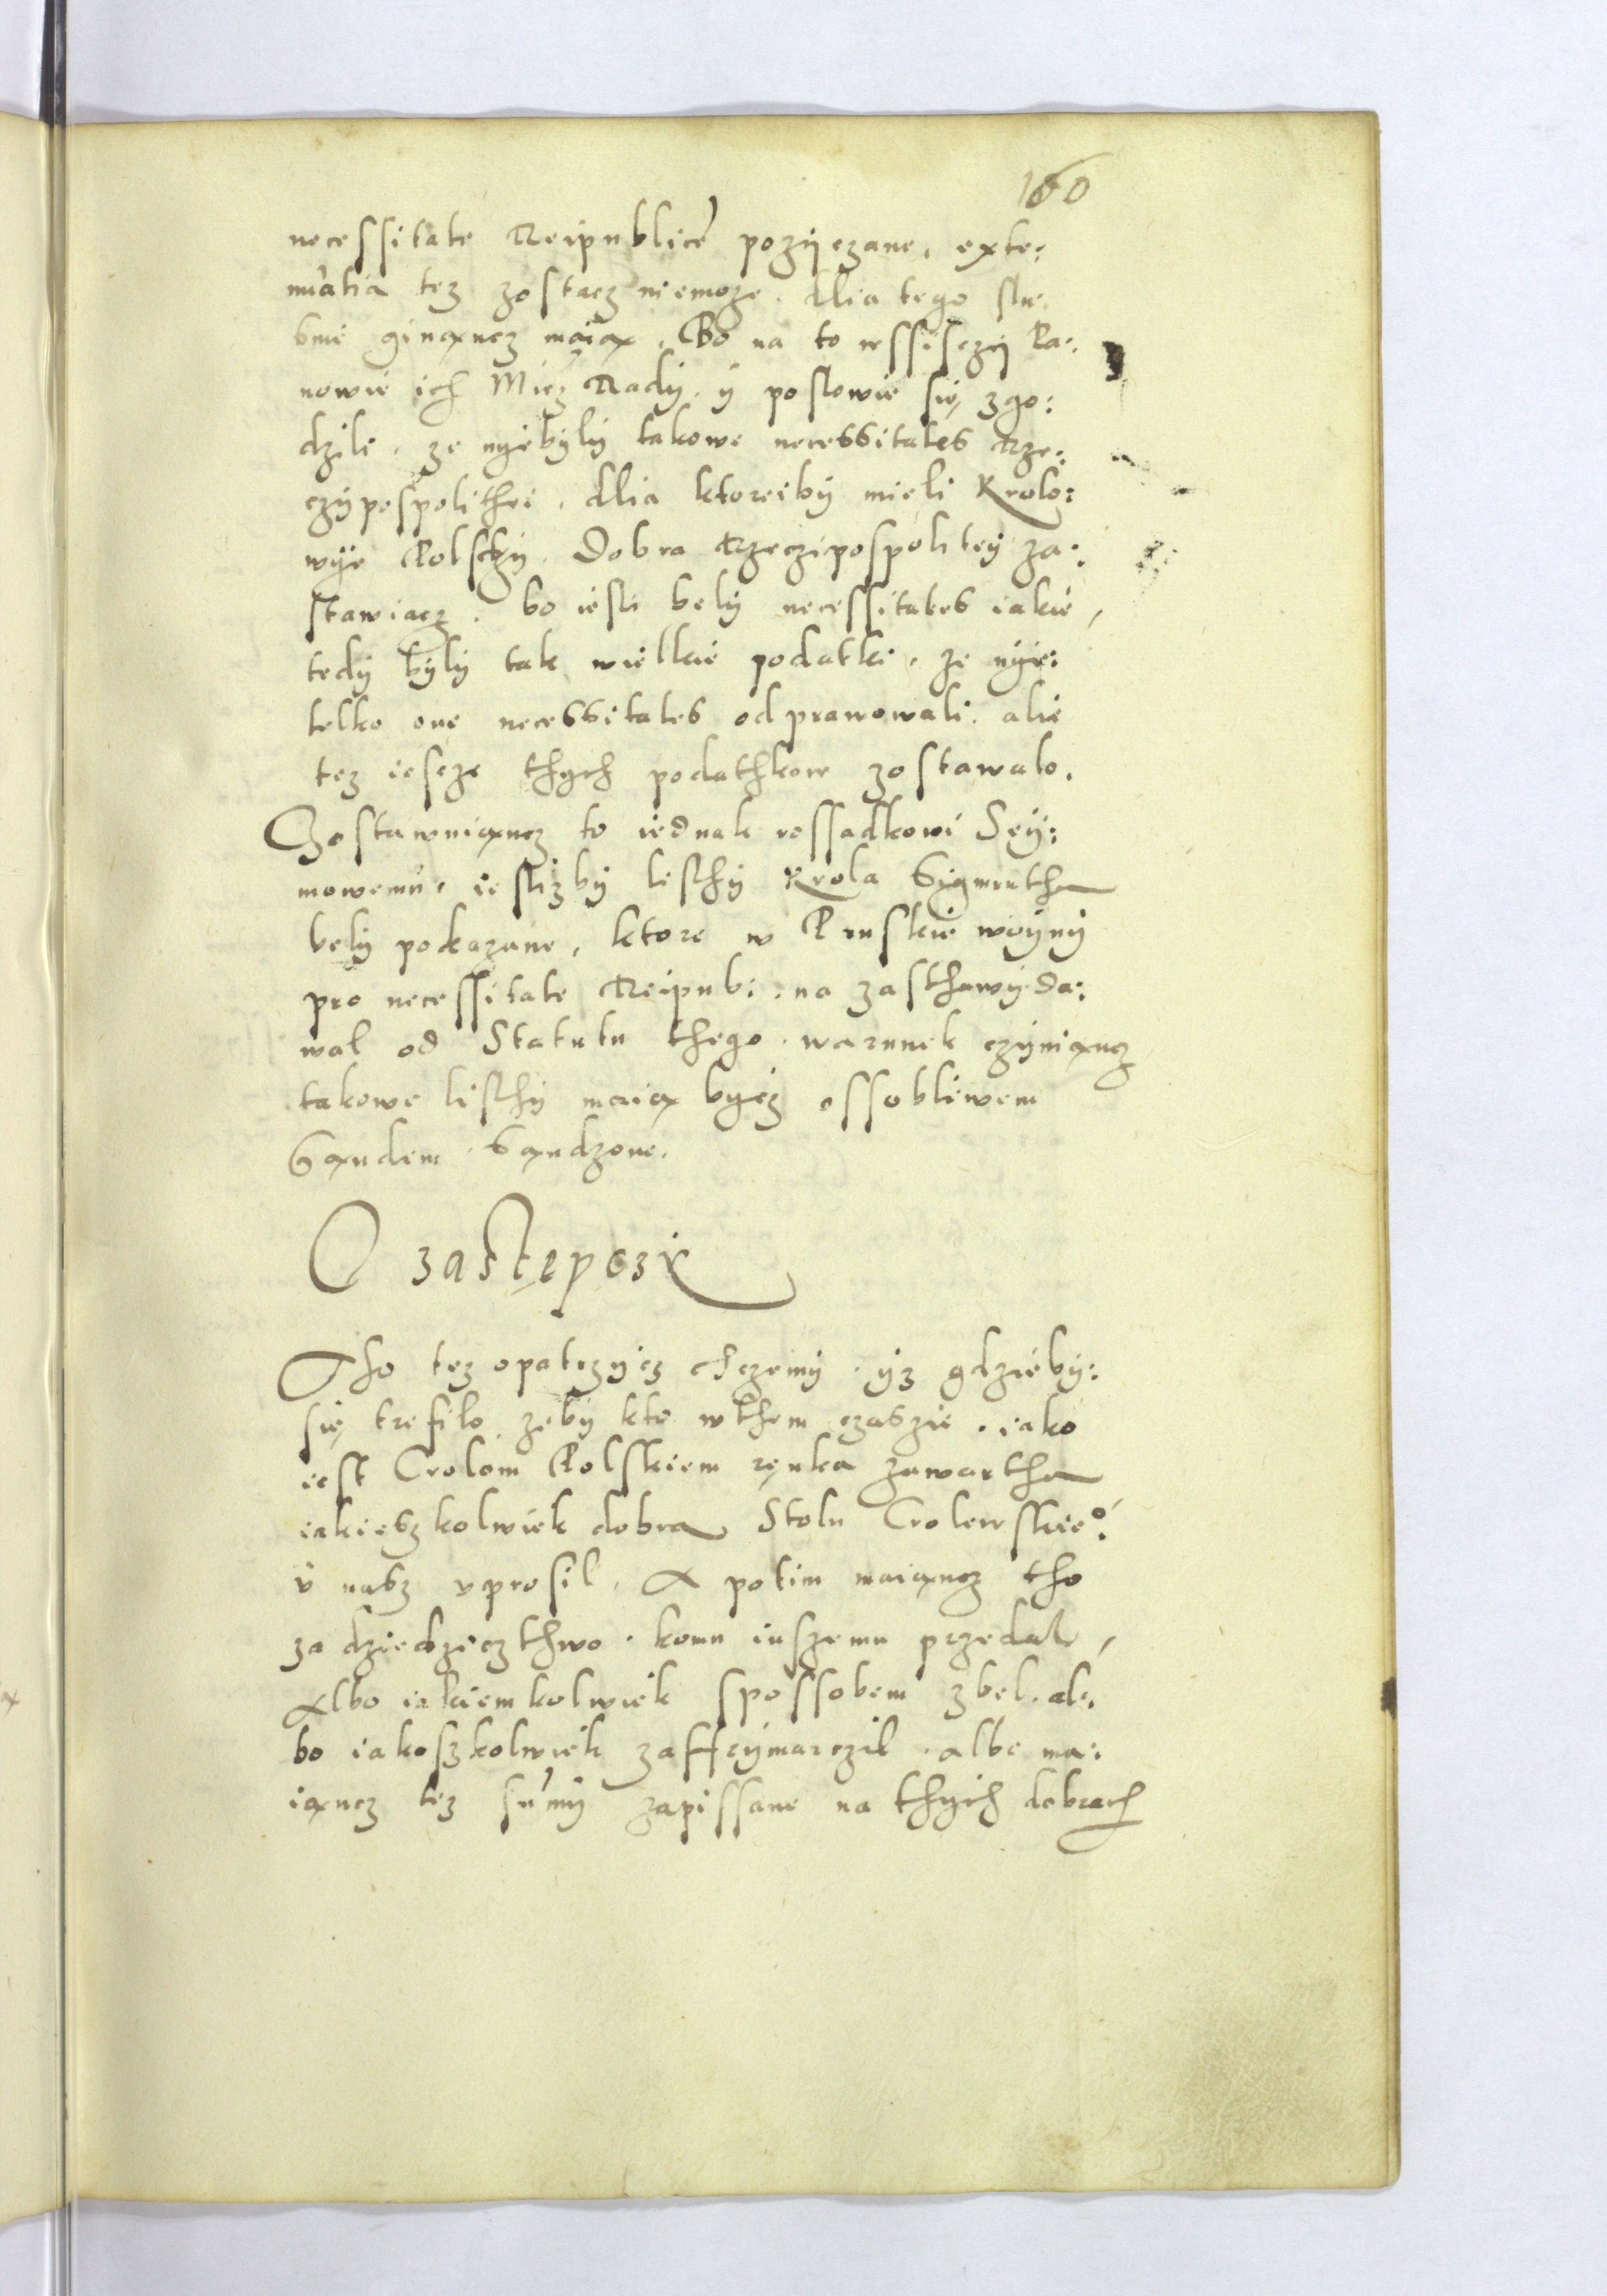 160
necessitate Reipublice pozÿczane, exte:
nuatia tez zostacz niemoze. dlia tego slu
bme ginąncz maią. Bo na to wssisczÿ Pa:
nowie ich Micz Radÿ. ÿ poslowie się zgo:
dzili. ze nÿebÿlÿ takowe necessitates Rze:
czÿpospolithei. dlia ktoreibÿ mieli Krolo:
wÿe Polsczÿ. Dobra Rzeczipospolitey za:
stawiacz. bo iesli belÿ necessitates iakie,
tedÿ bÿlÿ tak wielkie podatki. ze nÿie:
telko one necessitates odprawowali. alie
tez iescze thych podathkow zostawalo.
Zostawuiąncz to iednak rossadkowi Seÿ:
mowemu. ieslizbÿ listhÿ Krola Sigmuntha
belÿ pokazane, ktore w Pruskie woÿnÿ
pro necessitate Reipub: na zasthawÿ da:
wal od Statutu thego. warunek czÿniąncz
takowe listhÿ maią bycz ossobliwem
Sąndem sąndzone.
O zastępczÿ
Tho tez opatrzycz chczemÿ. ÿz gdziebÿ:
się trefilo zebÿ kto w them czaszie. iako
iest Crolom Polskiem ręnka zawartha
iakieszkolwiek dobra Stolu Crolewskieº:
v nasz vprosil. A potim maiąncz tho
za dziedziczthwo. komu inszemu przedal,
Albo iakiemkolwiek spossobem zbel. al:
bo iakoszkolwiek zaffrÿmarczil. albo ma:
iąncz tez sumÿ zapissane na thych dobrach